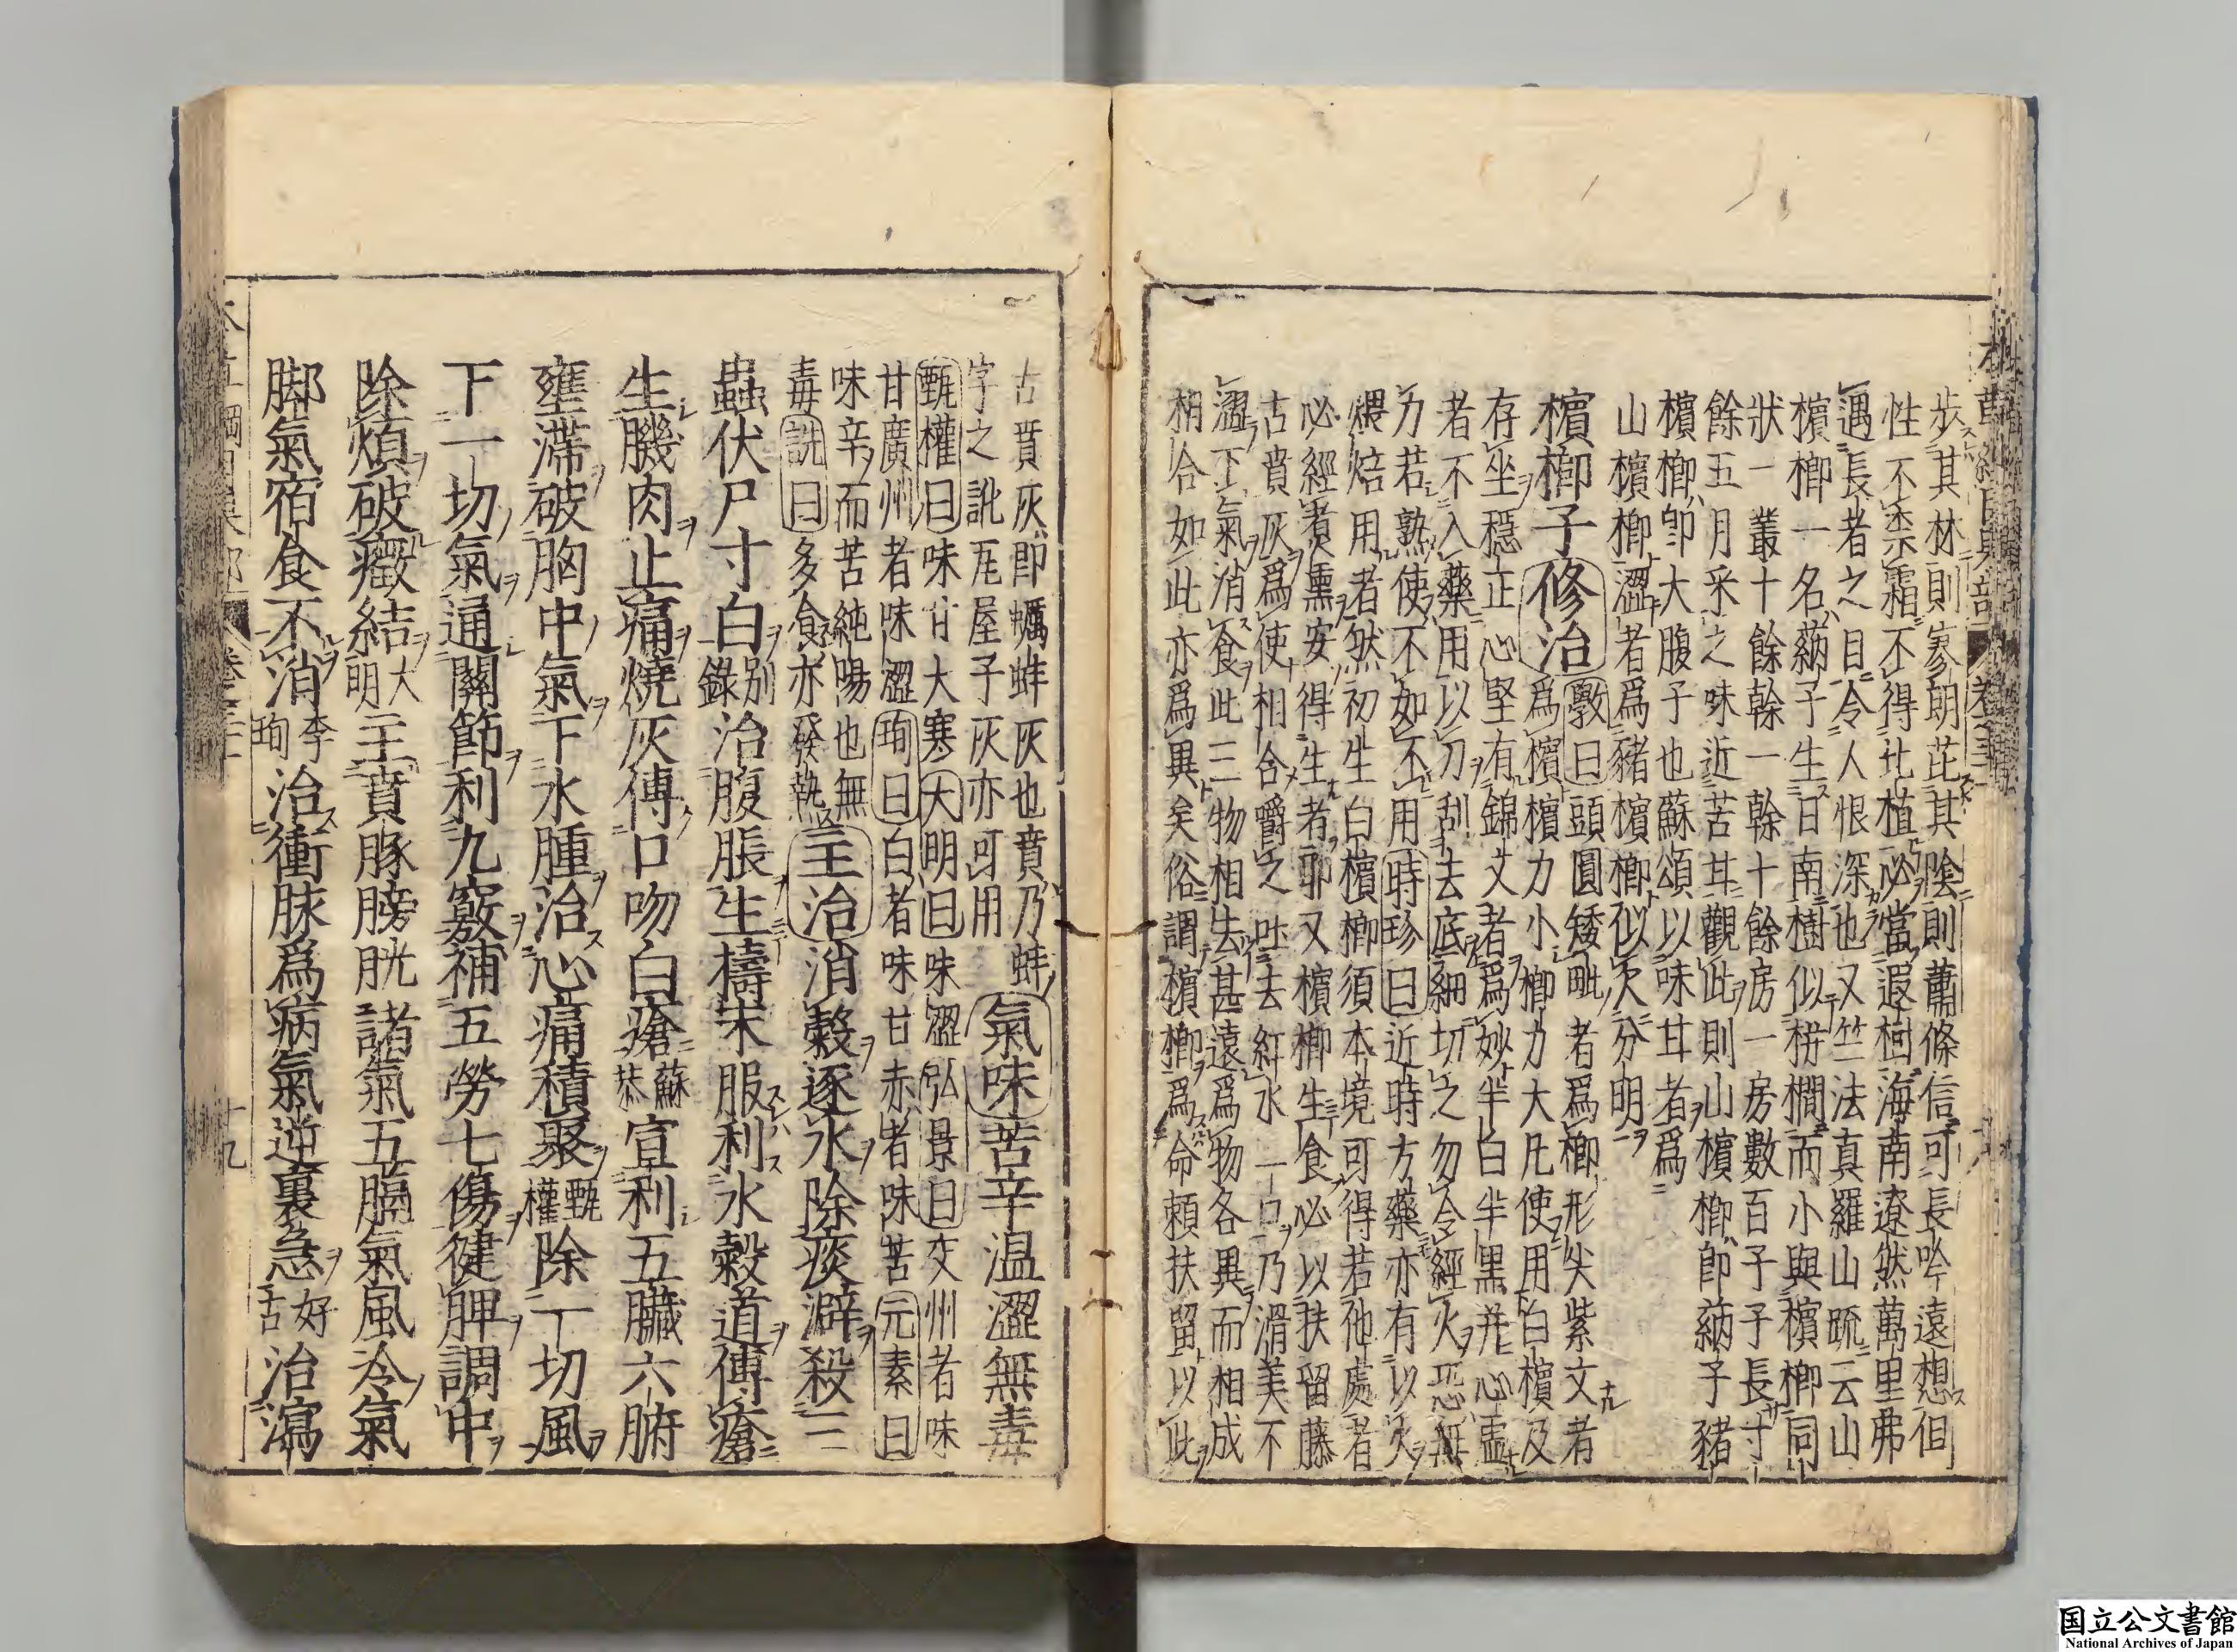 歩其林則寥朗芘其陰則蕭條信可長吟遠想但
性不柰霜不得北植必當遐樹海南遼然萬里弗
遇長者之目令人恨深也又竺法真羅山疏云山
檳榔一名蒳子生日南樹似栟櫚而小與檳榔同
狀一叢十餘幹一幹十餘房一房數百子子長寸
餘五月采之味近苦甘觀此則山檳榔即蒳子豬
檳榔即大腹子也蘇頌以味甘者為
山檳榔澀者為豬檳榔似欠分明
檳榔子修治斅曰頭圓矮毗者為榔形尖紫文者
為檳檳力小榔力大凡使用白檳及
存坐穩正心堅有錦文者為妙半白半黑并心虛
者不入藥用以刀刮去底細切之勿令經火恐無
力若熟使不如不用時珍曰近時方藥亦有以火
煨焙用者然初生白檳榔須本境可得若他處者
必經煮熏安得生者耶又檳榔生食必以扶留藤
古賁灰為使相合嚼之吐去紅水一口乃滑美不
澀下氣消食此三物相去甚遠為物各異而相成
相合如此亦為異矣俗謂檳榔為命賴扶留以此
古賁灰即蠣蚌灰也賁乃蚌
字之訛瓦屋子灰亦可用
氣味苦辛温澀無毒
甄權曰味甘大寒大明曰味澀弘景曰交州者味
甘廣州者味澀珣曰白者味甘赤者味苦元素曰
味辛而苦純陽也無
毒詵曰多食亦發熱
主治消穀逐水除痰澼殺三
蟲伏尸寸白別錄治腹脹生擣末服利水穀道傅瘡
生肌肉止痛燒灰傅口吻白瘡蘇恭宣利五臟六腑
壅滯破胸中氣下水腫治心痛積聚甄權除一切風
下一切氣通關節利九竅補五勞七傷健脾調中
除煩破癥結大明主賁豚膀胱諸氣五膈氣風冷氣
脚氣宿食不消李珣治衝脉為病氣逆裏急好古治瀉
十九
国立公文書館
National Archives of Japan